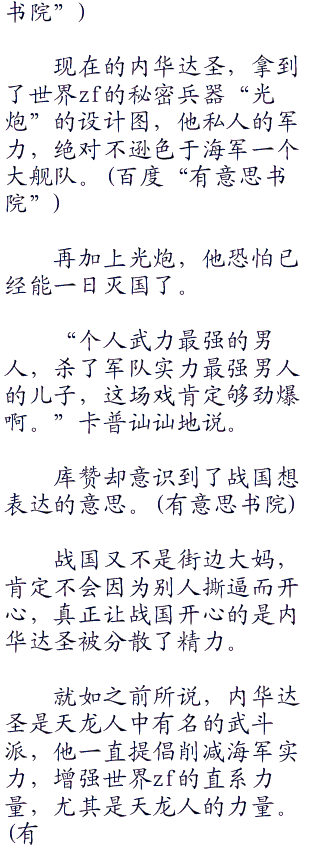 书院”)
现在的内华达圣，拿到
了世界zf的秘密兵器“光
炮”的设计图，他私人的军
力，绝对不逊色于海军一个
大舰队。(百度“有意思书
院”)
再加上光炮，他恐怕已
经能一日灭国了。
“个人武力最强的男
人，杀了军队实力最强男人
的儿子，这场戏肯定够劲爆
啊。”卡普讪讪地说。
库赞却意识到了战国想
表达的意思。(有意思书院)
战国又不是街边大妈，
肯定不会因为别人撕逼而开
心，真正让战国开心的是内
华达圣被分散了精力。
就如之前所说，内华达
圣是天龙人中有名的武斗
派，他一直提倡削减海军实
力，增强世界zf的直系力
量，尤其是天龙人的力量。
(有